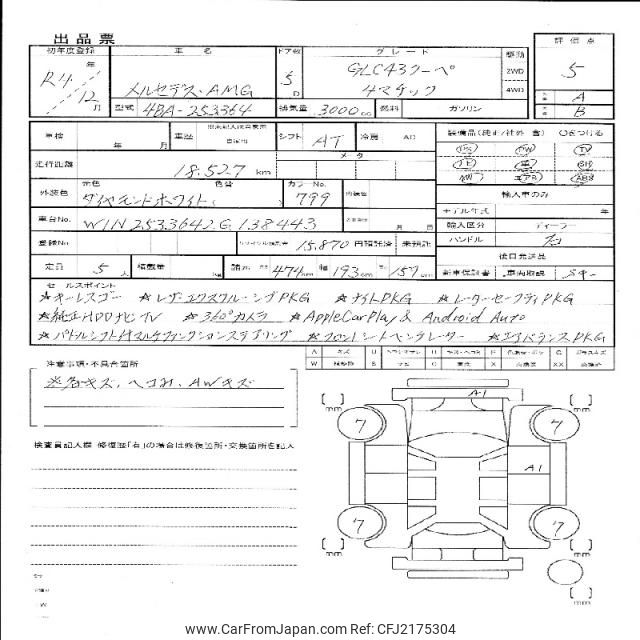 出品票
初年度登録 車名 ドア数 グレード 駆動 評価点
R4年 12月 メルセデス・AMG 5D GLC43クーペ 4マチック 2WD 4WD 5 A B
型式 4BA-253364 排気量 3000cc 燃料 ガソリン
車検 年 月 車歴 シフト AT 冷房 AC 装備品(純正/社外 含)○をつける
PS PW TV
走行距離 18,527 km メータ
AW エアB ABS
外装色 元色 ダイヤモンドホワイト 色替 カラーNo. 799 輸入車のみ
モデル年式 年
車台No. W1N2533642G138443 輸入区分 ディーラー
登録No. リサイクル預託金 15,870 円預託済 未預託 ハンドル 右
後日発送品
定員 5人 積載量 kg 諸元 長さ 474cm 幅 193cm 高さ 157cm 新車保証書 車両取説
セールスポイント
☆キーレスゴー ☆レザーエクスクルーシブPKG ☆ナイトPKG ☆レーダーセーフティPKG
☆純正HDDナビTV ☆360°カメラ ☆AppleCarPlay & Android Auto
☆パドルシフト付マルチファンクションステアリング ☆フロントシートベンチレーター ☆エアバランスPKG
注意事項・不具合箇所
※各キズ、ヘコみ、AWキズ
検査員記入欄 修復歴「有」の場合は修復箇所・交換箇所を記入
A1
7 7
A1
7 7
mm mm
mm mm
www.CarFromJapan.com Ref: CFJ2175304